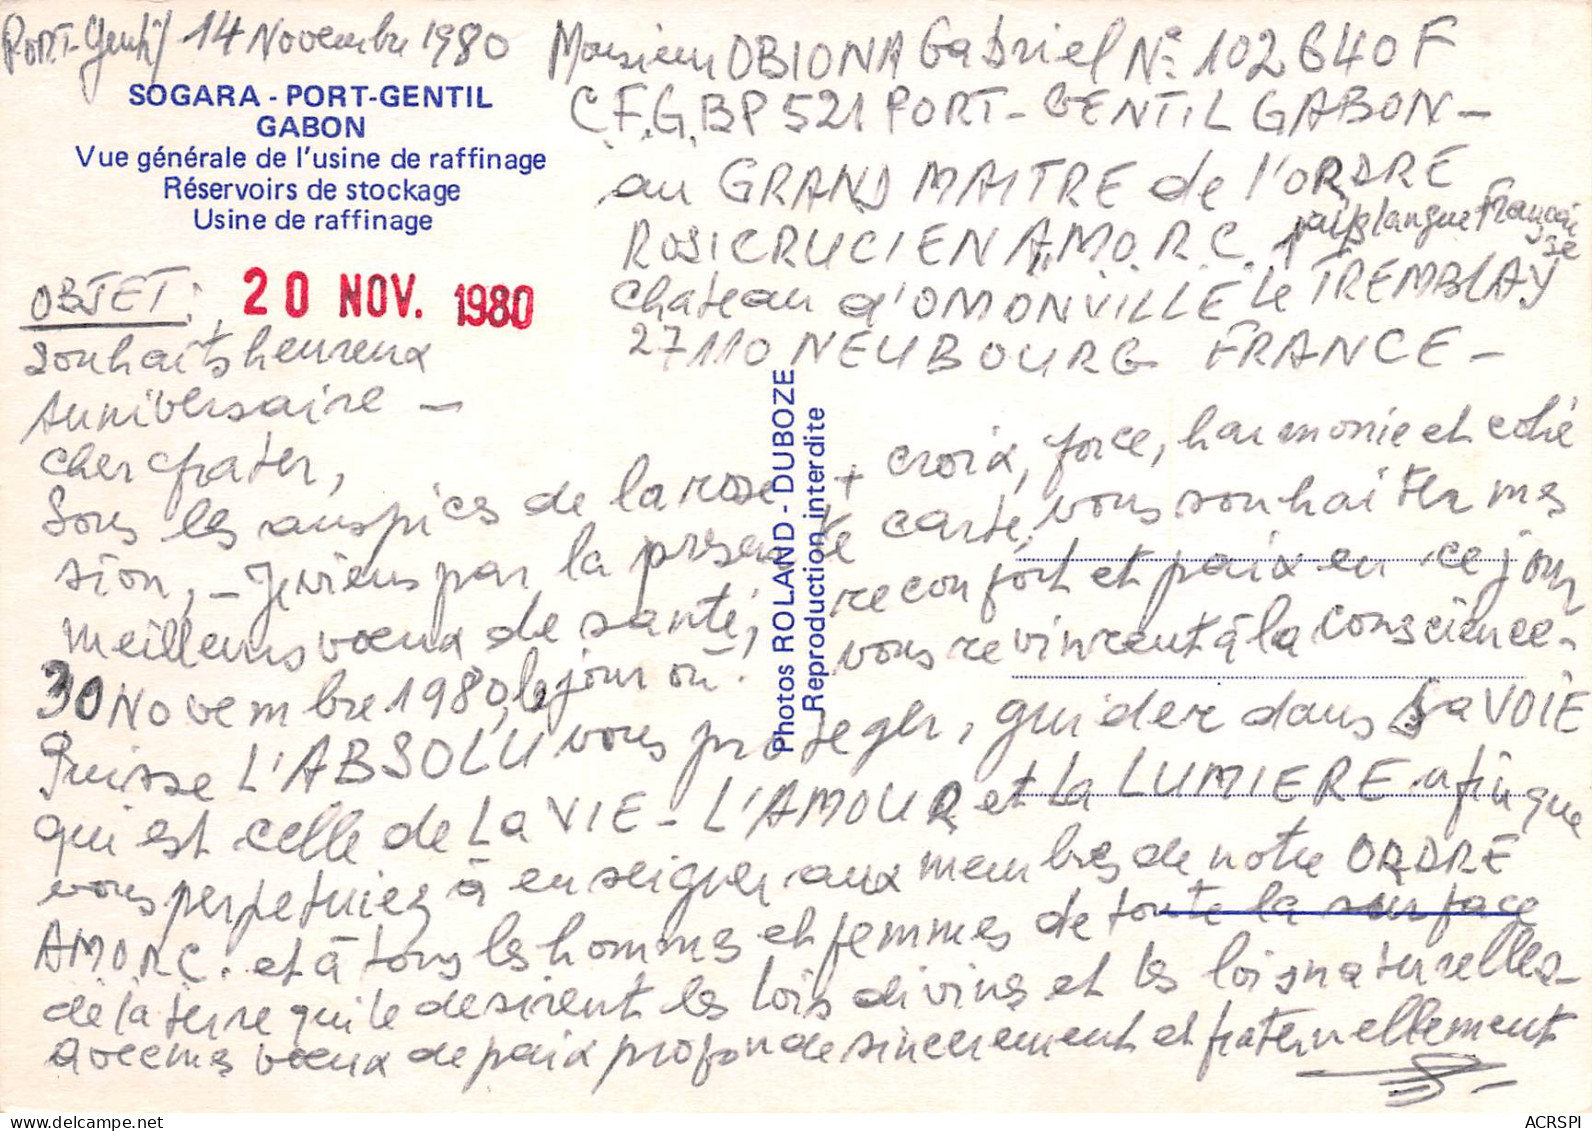 Port-Gentil 14 Novembre 1980
SOGARA - PORT-GENTIL
GABON
Vue générale de l'usine de raffinage
Réservoirs de stockage
Usine de raffinage
Monsieur OBIONA Gabriel No 102640F
C.F.G. BP 521 PORT-GENTIL GABON -
au GRAND MAITRE de l'ORDRE
ROSICRUCIEN A.M.O.R.C. pays langue Françai
se
Château d'OMONVILLE Le TREMBLAY
27110 NEUBOURG FRANCE -
OBJET :
20 NOV. 1980
Souhaits heureux
Anniversaire -
Cher frater,
Sous les auspices de la rose + croix, force, harmonie et cohé
sion, - Je viens par la présente carte, vous souhaiter mes
meilleurs vœux de santé, reconfort et paix en ce jour
30 Novembre 1980, le jour où vous revinrent à la conscience -
Puisse L'ABSOLU vous proteger, guider dans La VOIE
qui est celle de La VIE - L'AMOUR et La LUMIERE afin que
vous perpetuiez à enseigner aux membres de notre ORDRE
AMORC. et à tous les hommes et femmes de toute la surface
de la terre qui le desirent les lois divines et les lois naturelles -
avec mes vœux de paix profonde sincerement et fraternellement
Photos ROLAND - DUBOZE
Reproduction interdite
ACRSPI